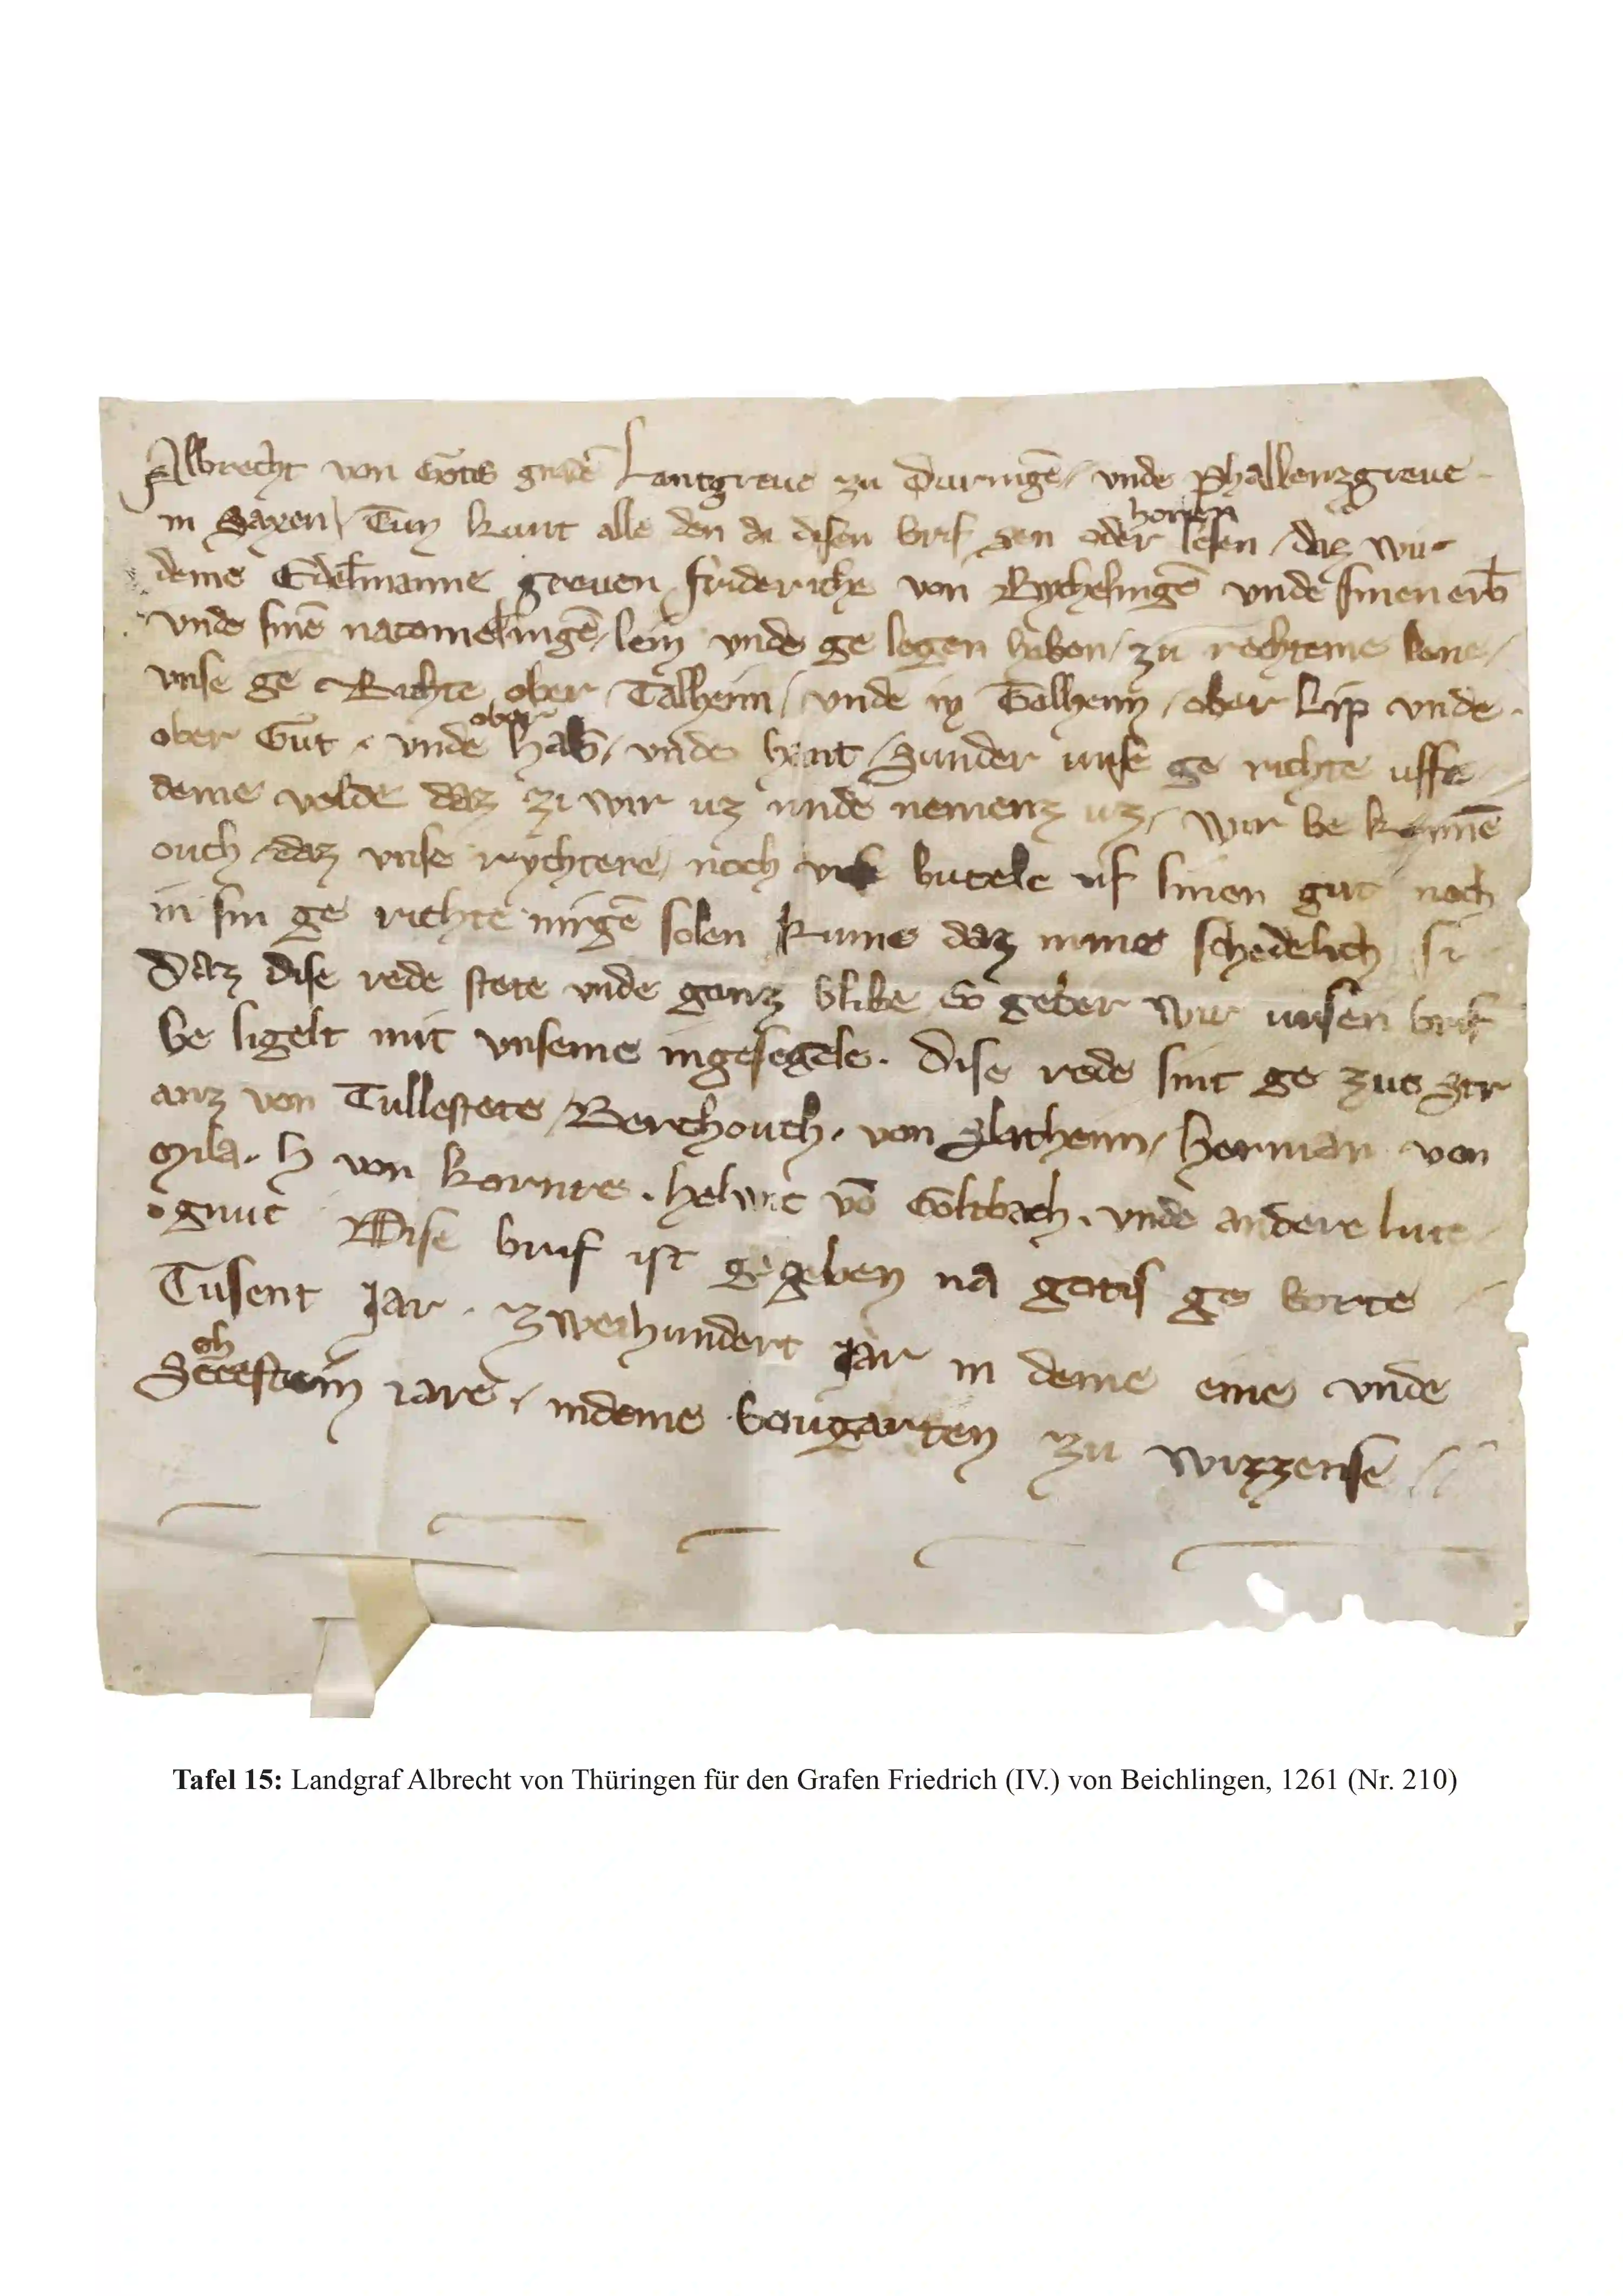 Albrecht von Gotis gnadē Lantgreue zu Duringē / vnde Phallenzgreue
in Saxen / Tun kunt alle den di disen brif sen oder horen lesen / daz wir
deme Edelmanne greuen frideriche von Bychelingē vnde sinen erb
vnde sinē nacomelingē / len vnde ge legen haben / zu rechteme lene /
vnse ge Richte ober Talheim / vnde in Talheim / ober Lip vnde
ober Gut . vnde ober hals / vnde hant / Sunder unse ge richte uffe
deme velde daz zi wir uz unde nemenz uz / wir be kennē
ouch daz vnse rychtere / noch butele uf sinen gut noch
in sin ge richte nirgē solen kume daz ime schedelich si
Daz dise rede stete vnde ganz blibe So gebe wir unsen brif
be sigelt mit vnseme ingesegele . Dise rede sint ge zug
von Tullestete / Berthouch . von / herman von
mila . h von kornre . helwic vō Goltbach . vnde andere lute
gnuc Dise brif ist gegeben na gotis ge borte
Tusent Jar . zweihundert Jar in deme eine vnde
iare . / indeme bougarten zu wizzense
Tafel 15: Landgraf Albrecht von Thüringen für den Grafen Friedrich (IV.) von Beichlingen, 1261 (Nr. 210)